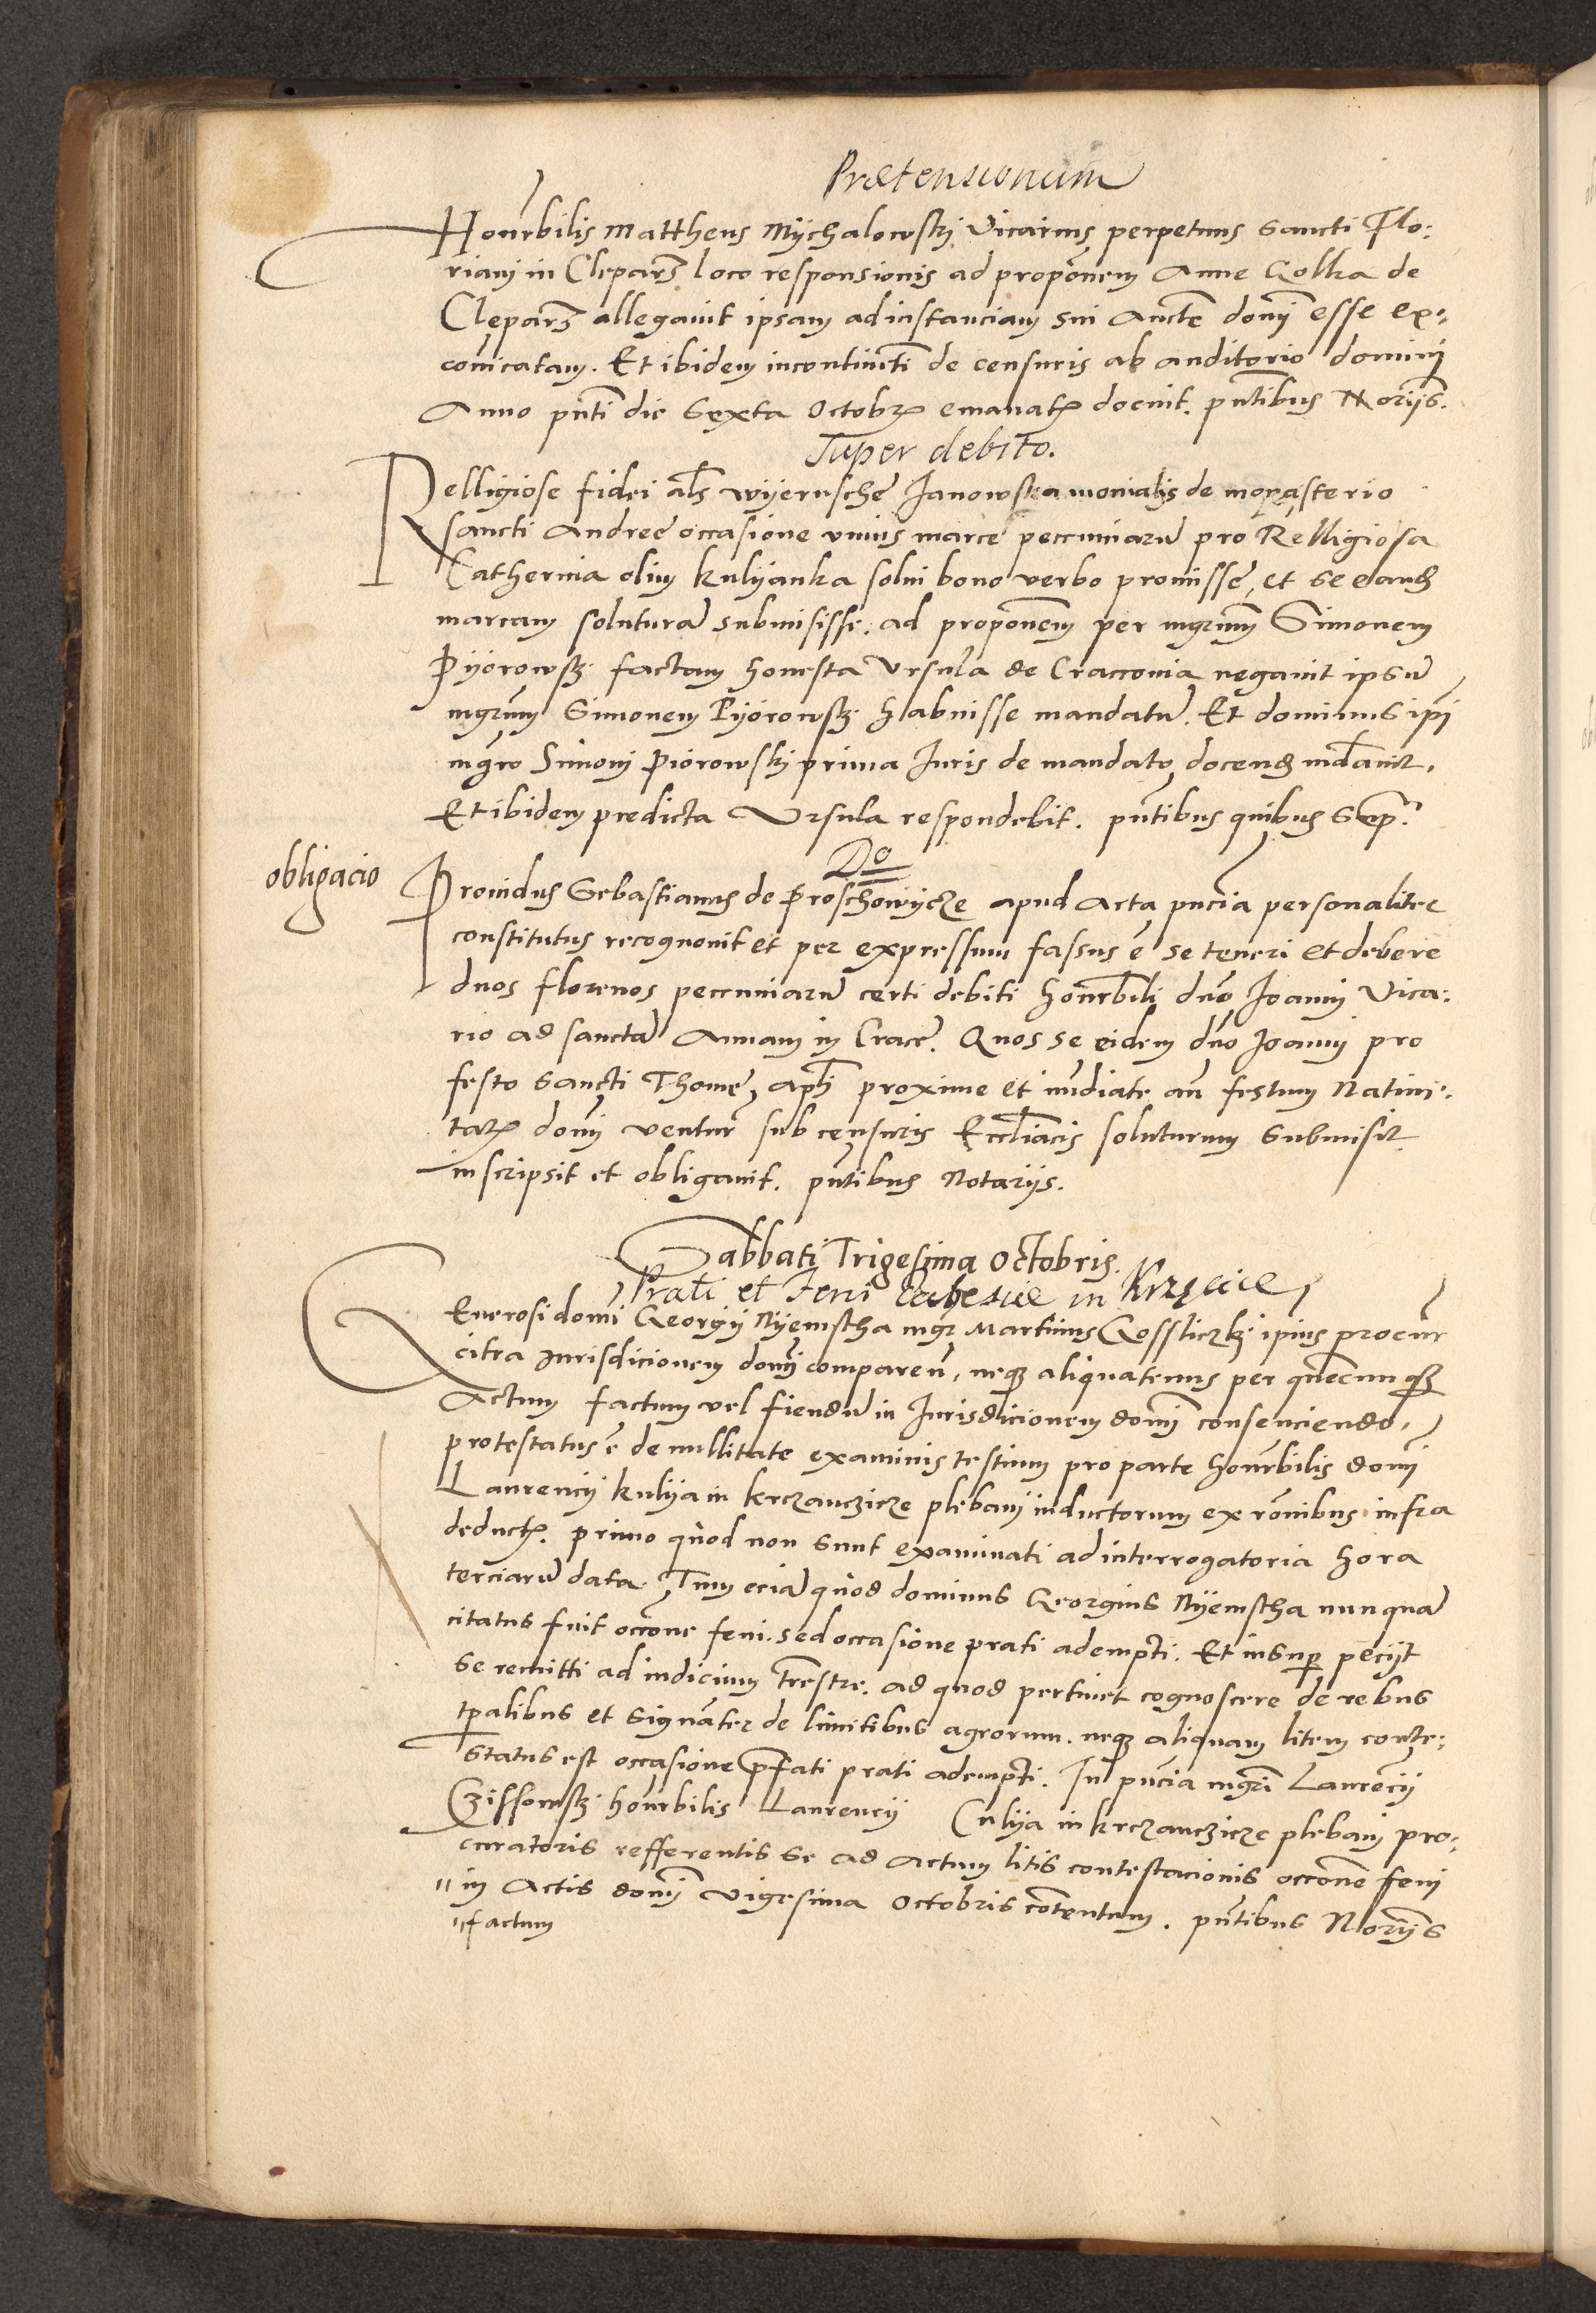 Prætensionum
Honrbilis Mattheus Mychalowskj Vicarius perpetuus Sancti Flo:
riani in Clepars loco responsionis ad proponem Anne Golka de
Clepars allegavit ipsam ad instanciam sui Aucte domj esse ex:
comicatam. Et ibidem incontinenti de censuris ab auditorio dominj
Anno pnti die Sexta Octobr emanatis docuit. pntibus Norijs.
Super debito.
Relligiose fidei als Wijerusche Janowska monialis de monasterio
sancti Andree occasione unius marce peccuniaru pro Relligiosa
Catherina olim Kulijanka solui bono verbo promisse, et se eand
marcam solutura submisisse. ad proponem per mgrum Simonem
Pijorowsk factam honesta Vrsula de Cracovia negavit ipsu
mgrum Simonem Pijorowsk habuisse mandatu. Et dominus ipi
mgro Simoni Piorowskj prima Juris de mandato docend mdavit.
Et ibidem predicta Vrsula respondebit. pntibus quibus Sup.
Do
obligacio
Providus Sebastianus de Proschowycze apud Acta pncia personaliter
constitutus recognovit et per expressum fassus e se teneri et debere
duos florenos peccuniaru certi debiti honrbili dno Joannj Vica:
rio ad sancta Annam in Crace. Quos se eidem dno Joannj pro
festo Sancti Thome, apli proxime et imdiate an festum Nativi:
tatis domj ventur sub censuris Ecclasticis soluturum submisit
inscripsit et obligavit. pntibus Notarijs.
Sabbati Trigesima Octobris.
Prati et feni Ecclesiæ in
Generosi domi Georgij Nyemstha mgr Martinus Gosslickj ipius procur
citra jurisdicionem domj comparen, neqz aliquatenus per quecunqz
Actum factum vel fiendu in Jurisdicionem domj consenciendo,
protestatus e de nullitate examinis testium pro parte honrbilis domj
Laurencij Kulija in Krczanczicze plebanj inductorum ex ronibus infra
deductis. primo quod non sunt examinati ad interrogatoria hora
terciaru data. Tum ecia quod dominus Georgius Nyemstha nunqua
citatus fuit occone feni. sed occasione prati adempti. Et insup peciit
se remitti ad iudicium trestre. ad quod pertinet cognoscere de rebus
tpalibus et signater de limitibus agrorum. neqz aliquam litem conte:
status est occasione pfati prati adempti. In pncia mgri Laurencij
honrbilis Laurencij Culija in Krczanczicze plebanj pro:
curatoris refferentis se ad Actum litis contestacionis occone feni
in Actis domj Vigesima Octobris contentum. pntibus Norijs
factum